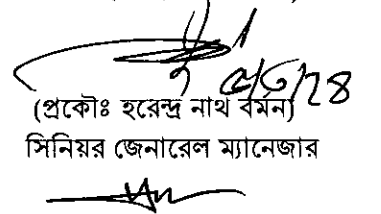 ৫/৩/২৪
(প্রকৌঃ হরেন্দ্র নাথ বর্মন)
সিনিয়র জেনারেল ম্যানেজার